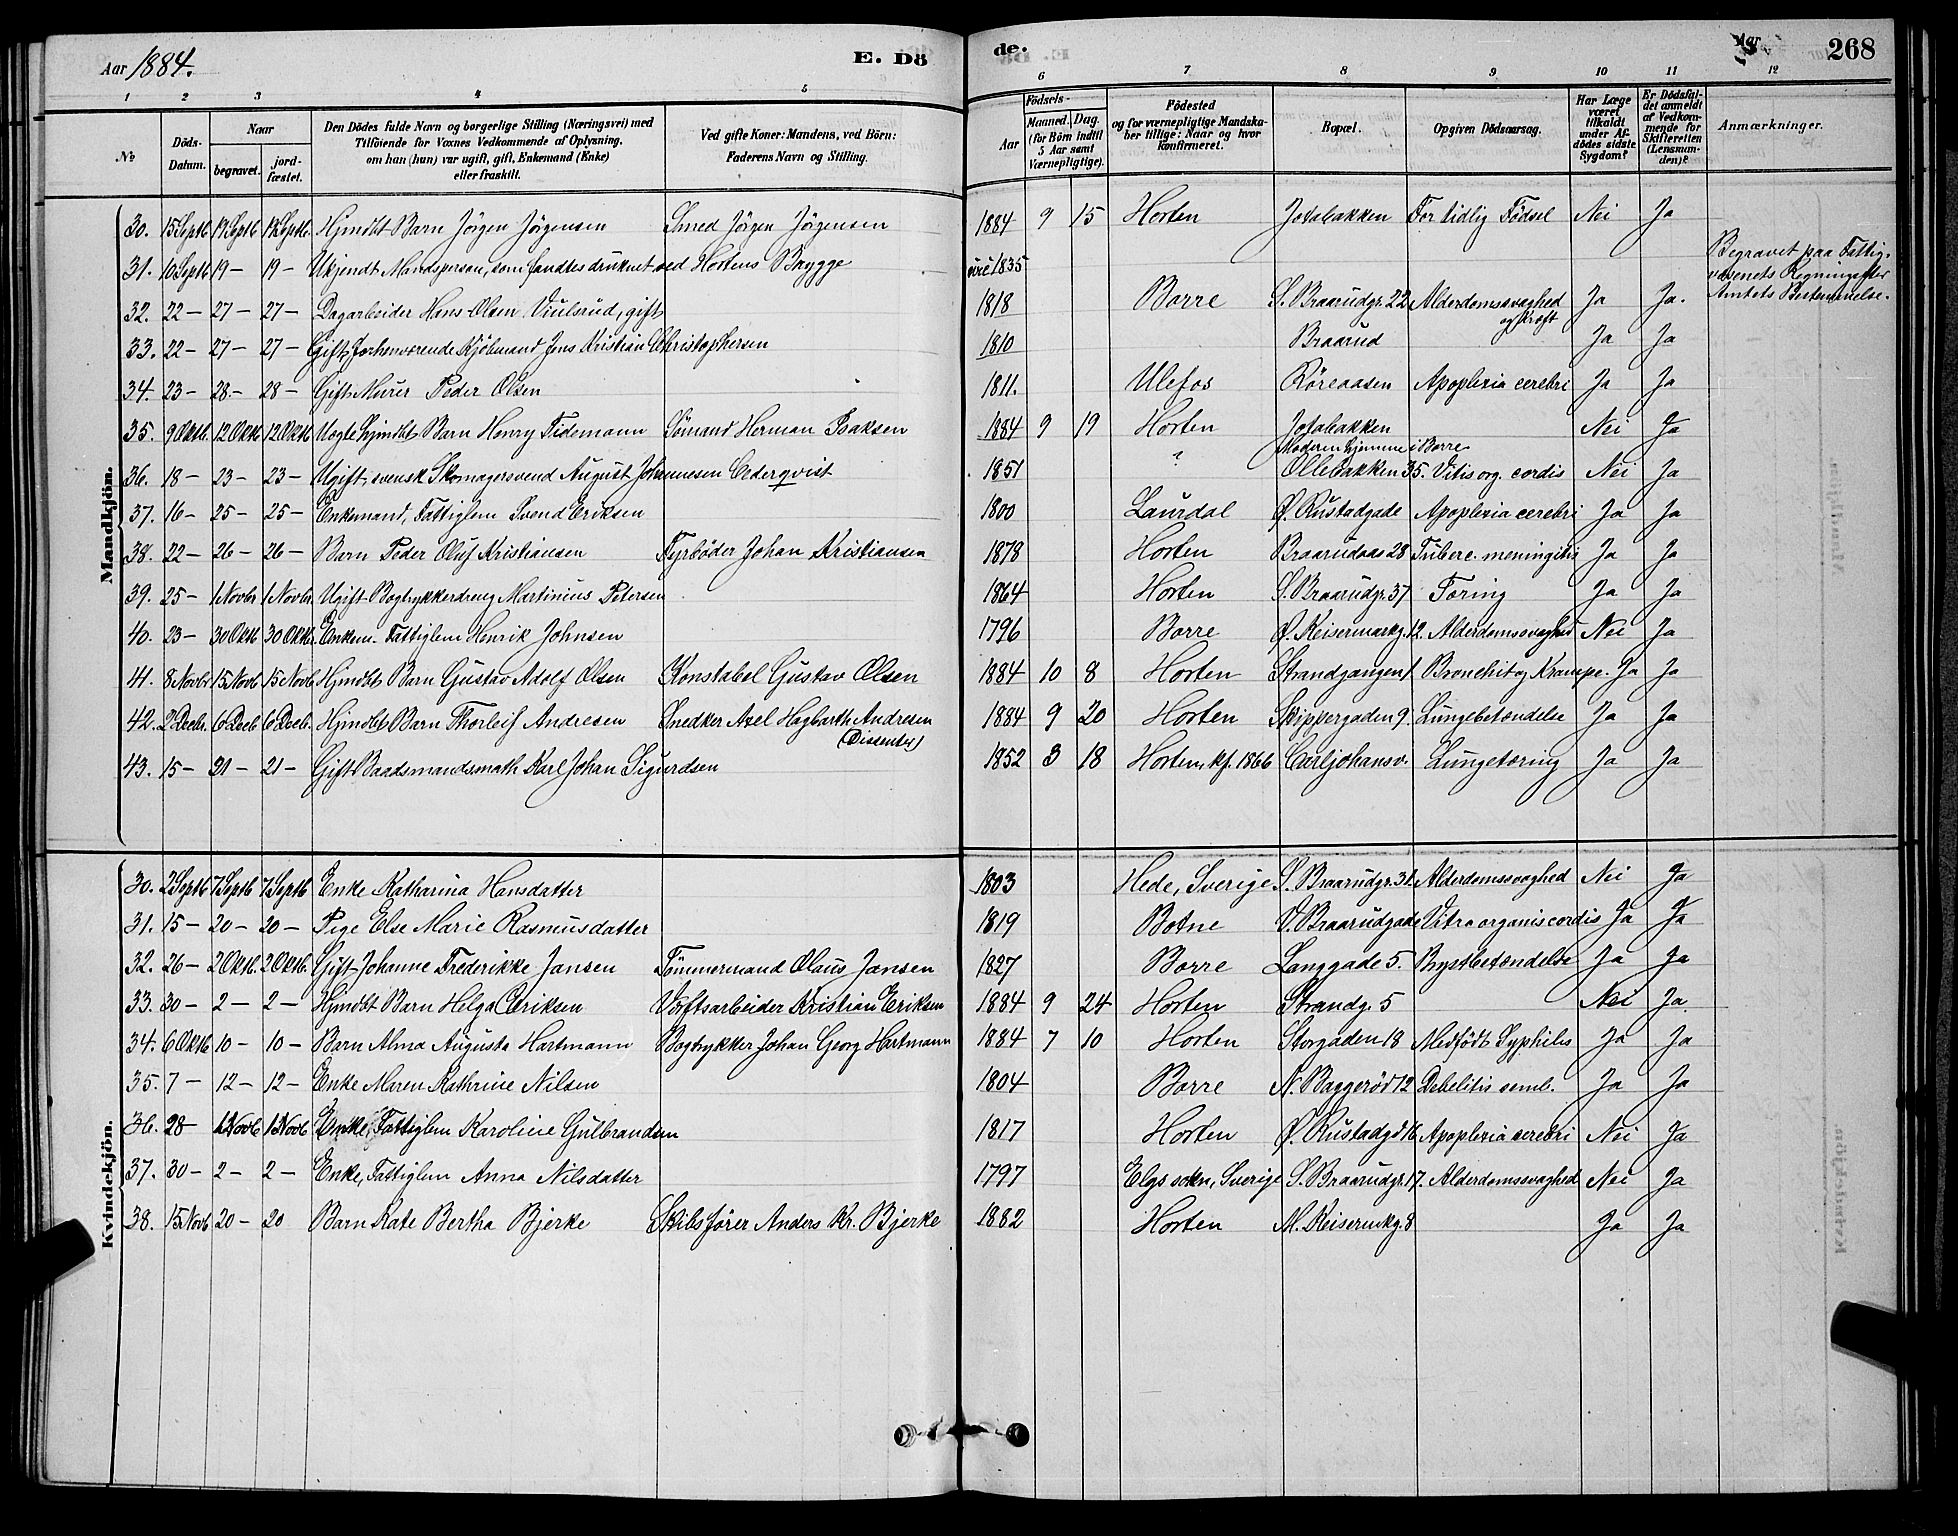 Aar 1884. E. Dö
de. Aar 268
1 2 3 4 5
6 7 8 9 10 11 12
No Döds-Datum. Naar begravet. jord-fæstet. Den Dödes fulde Navn og borgerlige Stilling (Næringsvei) med Tilföiende for Voxnes Vedkommende af Oplysning, om han (hun) var ugift, gift, Enkemand (Enke) eller fraskilt. Ved gifte Koner: Mandens, ved Börn: Faderens Navn og Stilling.
Födsels- Aar Maaned. Dag. (for Börn indtil 5 Aar samt Værnepligtige). Födested og for værnepligtige Mandskaber tillige: Naar og hvor konfirmeret. Bopæl. Opgiven Dödsaarsag. Har Læge været tilkaldt under Afdödes sidste Sygdom? Er Dödsfaldet anmeldt af Vedkommende for Skifteretten (Lensmanden)? Anmærkninger.
Mandkjön.
30. 15 Septb 19 Septb 19 Septb. Hjmdbt Barn Jörgen Jörgensen Smed Jörgen Jörgensen 1884 9 15 Horten Jotabakken For tidlig Fødsel Nei Ja
31. 10 Septb 19 — 19 — Ukjendt Mandsperson, som fandtes druknet ved Hortens Brygge circ 1835 Begravet paa Fattigvæsenets Regning efter Amtets Bestemmelse.
32. 22 — 27 — 27 — Dagarbeider Hans Olsen Viulsrud, gift 1818 Borre S. Braarudgr. 22 Alderdomssvaghed og Kræft Ja Ja.
33. 22 — 27 — 27 — Gift, forhenværende Kjöbmand Jens Kristian Christophersen 1810 Braarud Ja Ja
34. 23 — 28 — 28 — Gift Murer Peder Olsen 1811. Ulefos Röreaasen Apoplexia cerebri Ja Ja
35. 9 Oktb. 12 Oktb 12 Oktb Uægte hjmdbt Barn Henry Tidemann Sömand Herman Isaksen 1884 9 19 Horten Jotabakken Moderen hjemme i Borre Nei Ja
36. 18 — 23 — 23 — Ugift, svensk Skomagersvend August Johannesen Cederqvist 1851 ? Ollebakken 35. Vitis org. cordis Nei Ja
37. 16 — 25 — 25 — Enkemand, Fattiglem Svend Eriksen 1800 Laurdal Ø. Rustadgade Apoplexia cerebri Ja Ja
38. 22 — 26 — 26 — Barn Peder Oluf Kristiansen Fyrböder Johan Kristiansen 1878 Horten Braarudaas 28 Tuberc. meningitis Ja Ja
39. 25 — 1 Novbr 1 Novbr. Ugift Bogtrykkerdreng Martinius Petersen 1864 Horten S. Braarudgr. 37 Tæring Ja Ja
40. 23 — 30 Oktb 30 Oktb. Enkem. Fattiglem Henrik Johnsen 1796 Borre Ø. Keisermarkg. 12. Alderdomssvaghed Nei Ja
41. 8 Novbr 15 Novb 15 Novb. Hjmdbt Barn Gustav Adolf Olsen Konstabel Gustav Olsen 1884 10 8 Horten Strandgangen 1 Bronchit og Krampe. Ja Ja
42. 2 Decbr. 6 Decb 6 Decb. Hjmdbt Barn Thorleif Andresen Snedker Axel Hagbarth Andresen (Dissenter) 1884 9 20 Horten Skippergaden 9 Lungebetændelse Ja Ja
43. 15 — 21 — 21 — Gift Baadsmandsmath Karl Johan Sigurdsen 1852 3 18 Horten, kf. 1866 Carljohansv. Lungetæring Ja Ja
Kvindekjön.
30. 2 Septb 7 Septb 7 Septb Enke Katharina Hansdatter 1803 Hede, Sverige S. Braarudgr. 31. Alderdomssvaghed Nei Ja
31. 15 — 20 — 20 — Pige Else Marie Rasmusdatter 1819 Botne V. Braarudgade Vitra organis cordis Ja Ja
32. 26 — 2 Oktb. 2 Oktb. Gift Johanne Frederikke Jansen Tömmermand Olaus Jansen 1827 Borre Langgade 5. Brystbetændelse Ja Ja
33. 30 — 2 — 2 — Hjmdbt Barn Helga Eriksen Værftsarbeider Kristian Eriksen 1884 9 24 Horten Strandg. 5 Nei Ja
34. 6 Oktb 10 — 10 — Barn Alma Augusta Hartmann Bogtrykker Johan Georg Hartmann 1884 7 10 Horten Storgaden 18 Medfödt Syphilis Ja Ja
35. 7 — 12 — 12 — Enke Maren Kathrine Nilsen 1804 Borre N. Baggeröd 12 Debelitis senil. Ja Ja
36. 28 — 1 Novb 1 Novb Enke, Fattiglem Karoline Gulbrandsen 1817 Horten Ø. Rustadgd 16 Apoplexia cerebri Nei Ja
37. 30 — 2 — 2 — Enke, Fattiglem Anna Nilsdatter 1797 Elgs sokn, Sverige S. Braarudgr. 17. Alderdomssvaghed Nei Ja
38. 15 Novb 20 — 20 Barn Kate Bertha Bjerke Skibsfører Anders Kr. Bjerke 1882 Horten M. Keiserm kg. 8 Ja Ja